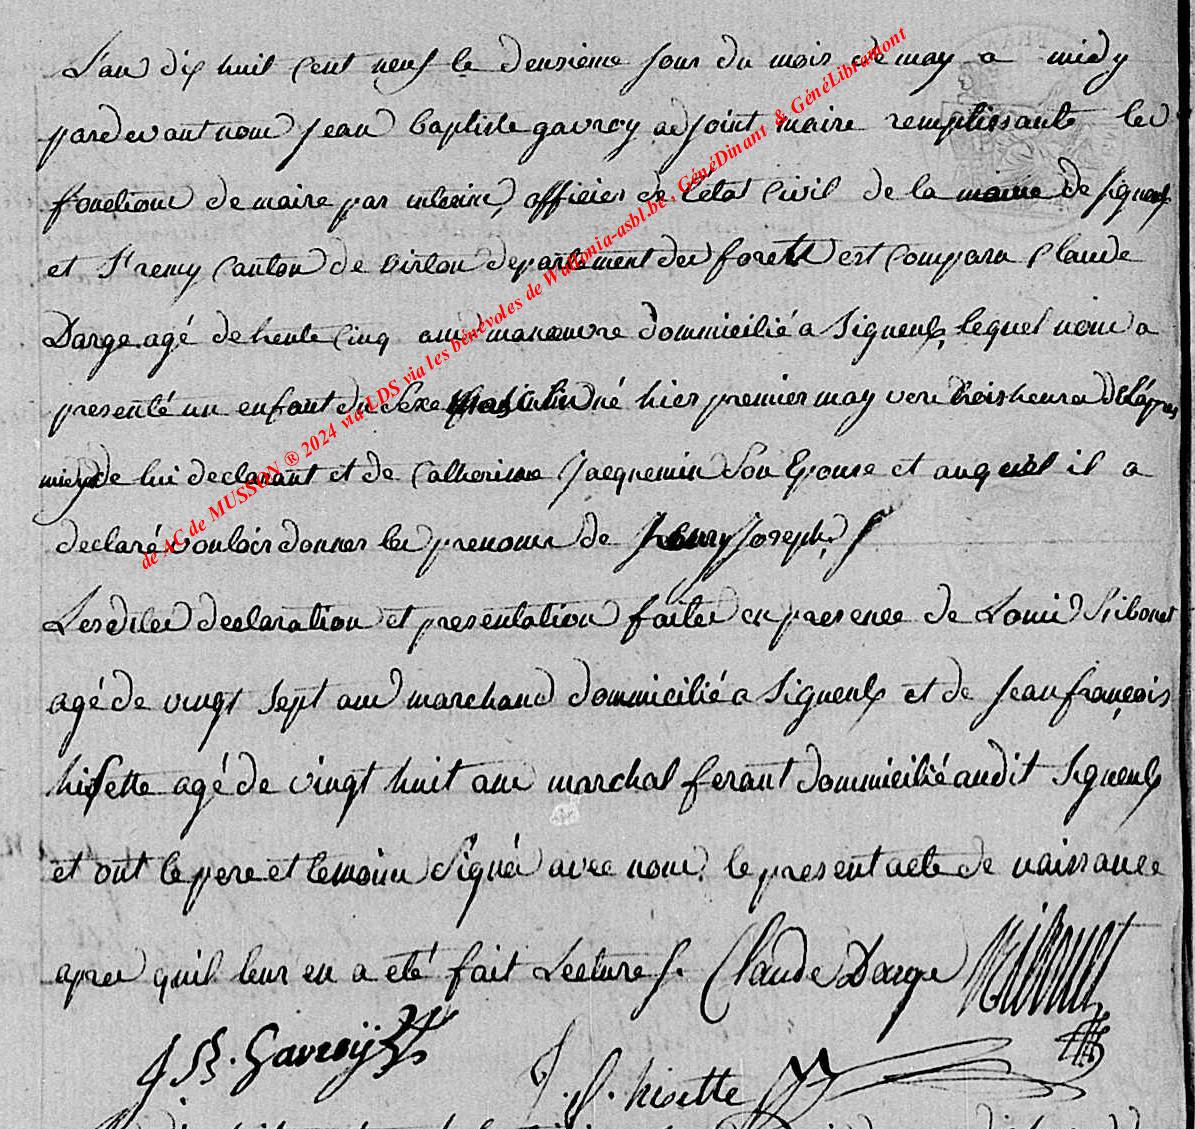 L'an dix huit cent neuf le deuxieme jour du mois de may a midy
pardevant nous jean baptiste gavroy adjoint maire remplissante les
fonctions de maire par interim, officier de l'etat Civil de la mairie de Signeulx
et St remy Canton de virton departement des forets est comparu Claude
Darge agé de trente Cinq ans manœuvre dommicilié a Signeulx, lequel nous a
presenté un enfant du Sexe Masculin né hier premier may vers trois heures de l'apres
midy de lui declarant et de Catherinne Jacquemin Son Epouse et auquel il a
declaré vouloir donner les prenoms de henry Joseph,
Lesdites declaration et presentation faites en presence de Louis
agé de vingt Sept ans marchand dommicilié a Signeulx et de jean françois
hisette agé de vingt huit ans marchal ferant dommicilié audit Signeulx
et ont le pere et temoins Signés avec nous. le present acte de naissance
apres qu'il leur en a eté fait Lecture. Claude Darge
J B. Gavroij
J. f. hisette
de AC de MUSSON ® 2024 via LDS via les bénévoles de Wallonia-asbl.be, GénéDinant & GénéLibramont